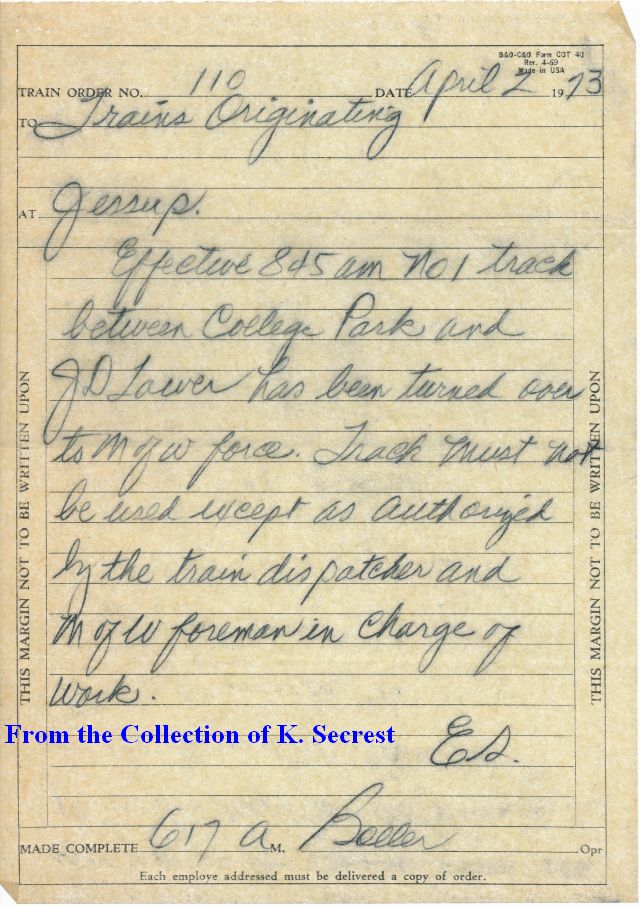 B&O-C&O Form CDT 40
Rev. 4-69
Made in USA
TRAIN ORDER NO. 110 DATE April 2 1973
TO Trains Originating
AT Jessup.
Effective 845 am No 1 track
between College Park and
JD Tower has been turned over
to M of W force. Track must not
be used except as authorized
by the train dispatcher and
M of W foreman in charge of
work.
From the Collection of K. Secrest
ES.
MADE COMPLETE 617 A M. Boller Opr
Each employe addressed must be delivered a copy of order.
THIS MARGIN NOT TO BE WRITTEN UPON
THIS MARGIN NOT TO BE WRITTEN UPON